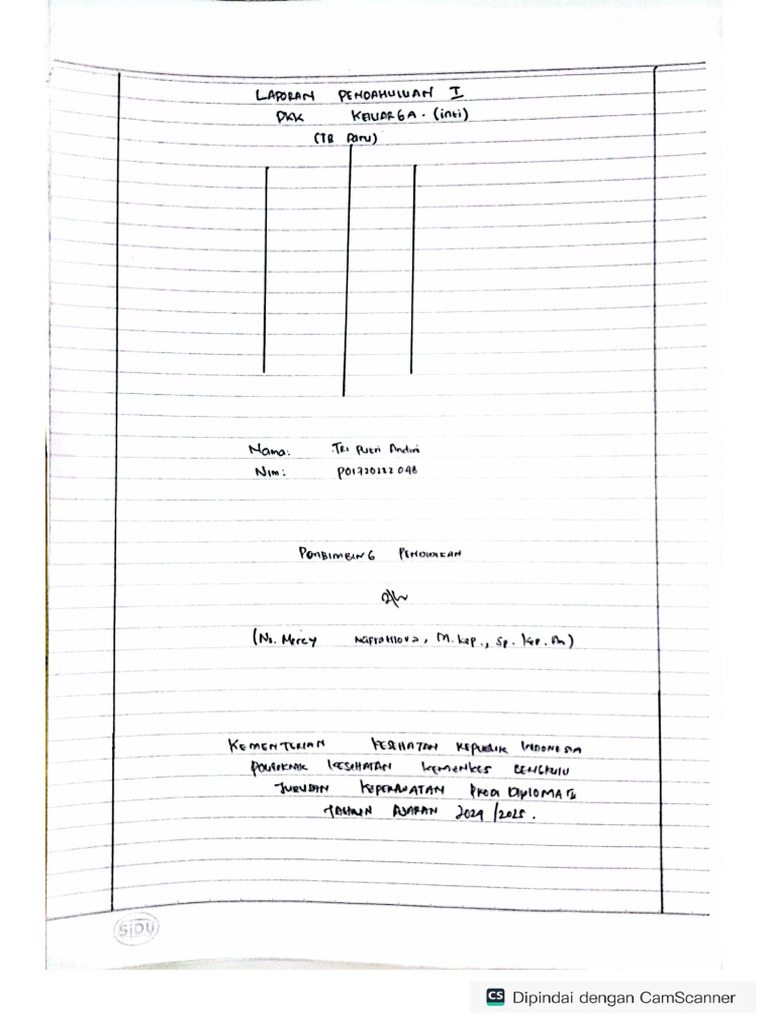 LAPORAN PENDAHULUAN I
PKK KELUARGA. (inti)
(TB Paru)
Nama: TRI Putri Andini
Nim: P01720222048
PEMBIMBING PENDIDIKAN
(Ns. Mercy M. Kep., Sp. Kep. An)
KEMENTERIAN KESEHATAN REPUBLIK INDONESIA
POLTEKNIK KESEHATAN KEMENKES BENGKULU
JURUSAN KEPERAWATAN PRODI DIPLOMA
TAHUN AJARAN 2024/2025.
SiDU
CS Dipindai dengan CamScanner